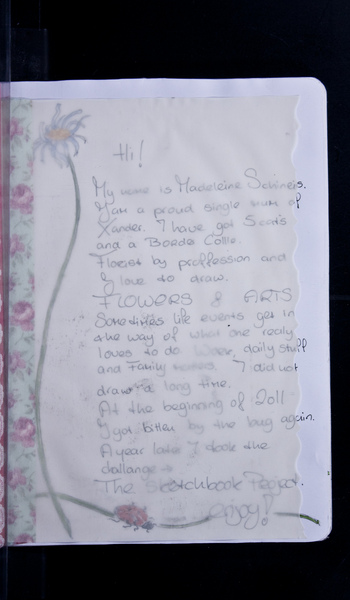 Hi!
My name is Madeleine Schiners.
I am a proud single mum of
Xander. I have got 5 cats
and a Borde Collie.
Florist by proffession and
I love to draw.
FLOWERS & ARTS
Sometimes life events get in
the way of what one really
loves to do daily stuff
and Family I did not
draw a long time.
At the beginning of 2011
I got bitten by the bug again.
A year later I took the
challange
The Sketchbook Project.
enjoy!